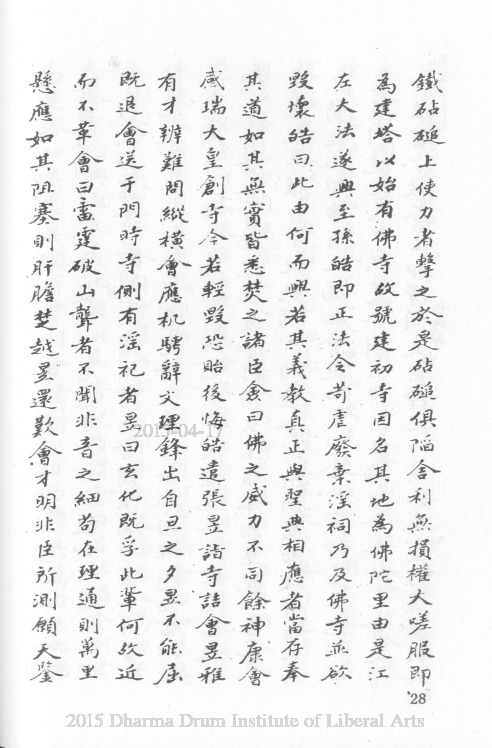 鐵砧磓上使力者擊之於是砧磓俱陷舍利無損權大嗟服即
為建塔以始有佛寺故號建初寺因名其地為佛陀里由是江
左大法遂興至孫皓即正法令苛虐廢棄淫祠乃及佛寺並欲
毀壞皓曰此由何而興若其義教真正與聖典相應者當存奉
其道如其無實皆悉焚之諸臣僉曰佛之威力不同餘神康會
感瑞大皇創寺今若輕毀恐貽後悔皓遣張昱詣寺詰會昱雅
有才辨難問縱橫會應机騁辭文理鋒出自旦之夕昱不能屈
既退會送于門時寺側有淫祀者昱曰玄化既孚此輩何故近
而不革會曰雷霆破山聾者不聞非音之細苟在理通則萬里
懸應如其阻塞則肝膽楚越昱還歎會才明非臣所測願天鑒
28
2015-04-17
2015 Dharma Drum Institute of Liberal Arts